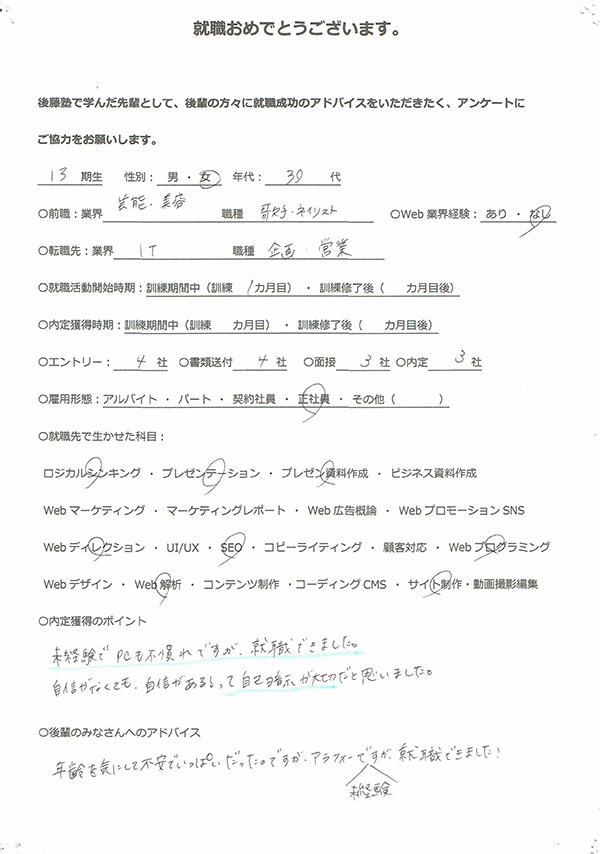 就職おめでとうございます。
後藤塾で学んだ先輩として、後輩の方々に就職成功のアドバイスをいただきたく、アンケートに
ご協力をお願いします。
13 期生 性別： 男 ・ 女 年代： 30 代
○前職：業界 芸能・美容 職種 歌手・ネイリスト ○Web 業界経験： あり ・ なし
○転職先：業界 IT 職種 企画・営業
○就職活動開始時期：訓練期間中（訓練 1カ月目） ・ 訓練修了後（ カ月目後）
○内定獲得時期：訓練期間中（訓練 カ月目） ・ 訓練修了後（ カ月目後）
○エントリー： 4 社 ○書類送付 4 社 ○面接 3 社 ○内定 3 社
○雇用形態：アルバイト ・ パート ・ 契約社員 ・ 正社員 ・ その他（ ）
○就職先で生かせた科目：
ロジカルシンキング ・ プレゼンテーション ・ プレゼン資料作成 ・ ビジネス資料作成
Web マーケティング ・ マーケティングレポート ・ Web 広告概論 ・ Web プロモーション SNS
Web ディレクション ・ UI/UX ・ SEO ・ コピーライティング ・ 顧客対応 ・ Web プログラミング
Web デザイン ・ Web 解析 ・ コンテンツ制作 ・コーディング CMS ・ サイト制作・動画撮影編集
○内定獲得のポイント
未経験でPCも不慣れですが、就職できました。
自信がなくても、自信があるって自己暗示が大切だと思いました。
○後輩のみなさんへのアドバイス
年齢を気にして不安でいっぱいだったのですが、アラフォーですが、就職できました！
未経験